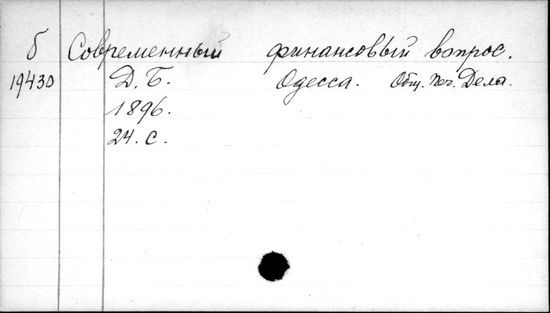 б Современный финансовый вопрос.
19430 Д. Б. Одесса. Общ. Печ. Дела.
1896.
24. с.